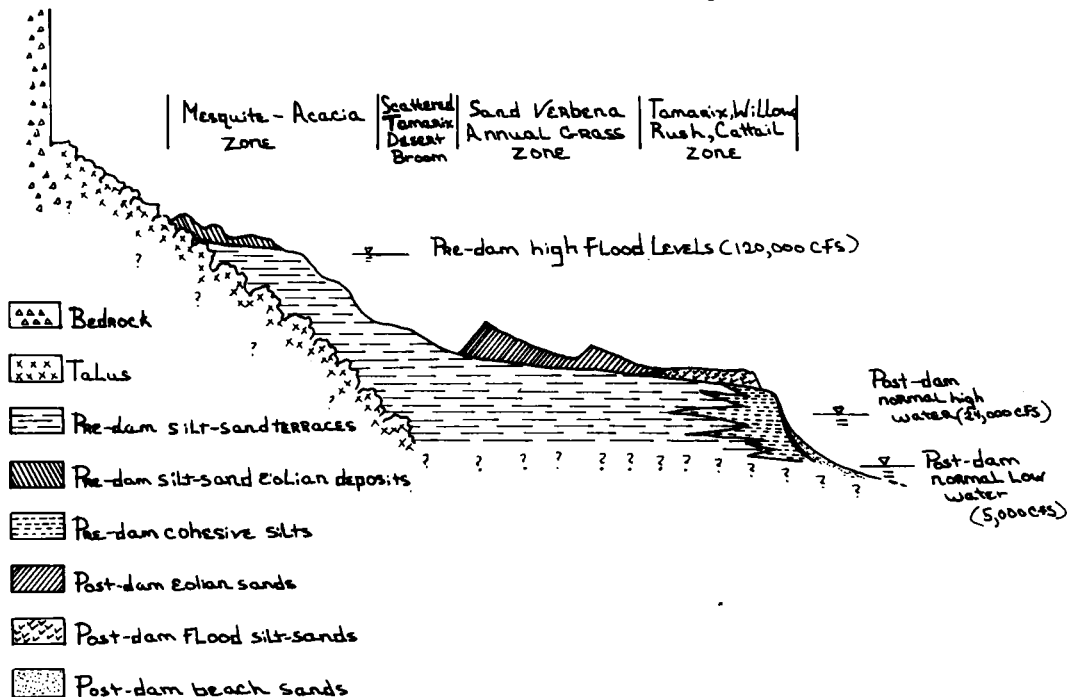 Mesquite - Acacia
Zone
Scattered
Tamarix
Desert
Broom
Sand Verbena
Annual Grass
Zone
Tamarix, Willow
Rush, Cattail
Zone
?
Pre-dam high Flood Levels (120,000 cfs)
?
?
Bedrock
?
Talus
?
Post-dam
normal high
water (24,000 cfs)
Pre-dam silt-sand terraces
?
Post-dam
normal low
water
(5,000 cfs)
? ? ? ? ? ? ? ? ? ? ? ?
Pre-dam silt-sand Eolian deposits
Pre-dam cohesive silts
Post-dam Eolian sands
Post-dam Flood silt-sands
Post-dam beach sands